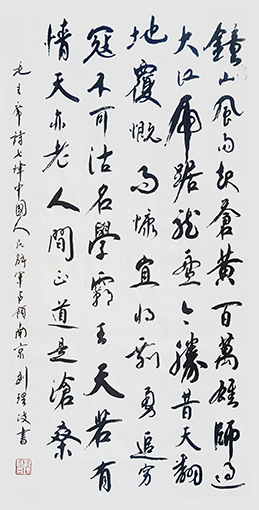 鐘山風雨起蒼黃百萬雄師過
大江虎踞龍盤今勝昔天翻
地覆慨而慷宜將剩勇追窮
寇不可沽名學霸王天若有
情天亦老人間正道是滄桑
毛主席詩七律中國人民解軍占領南京 書